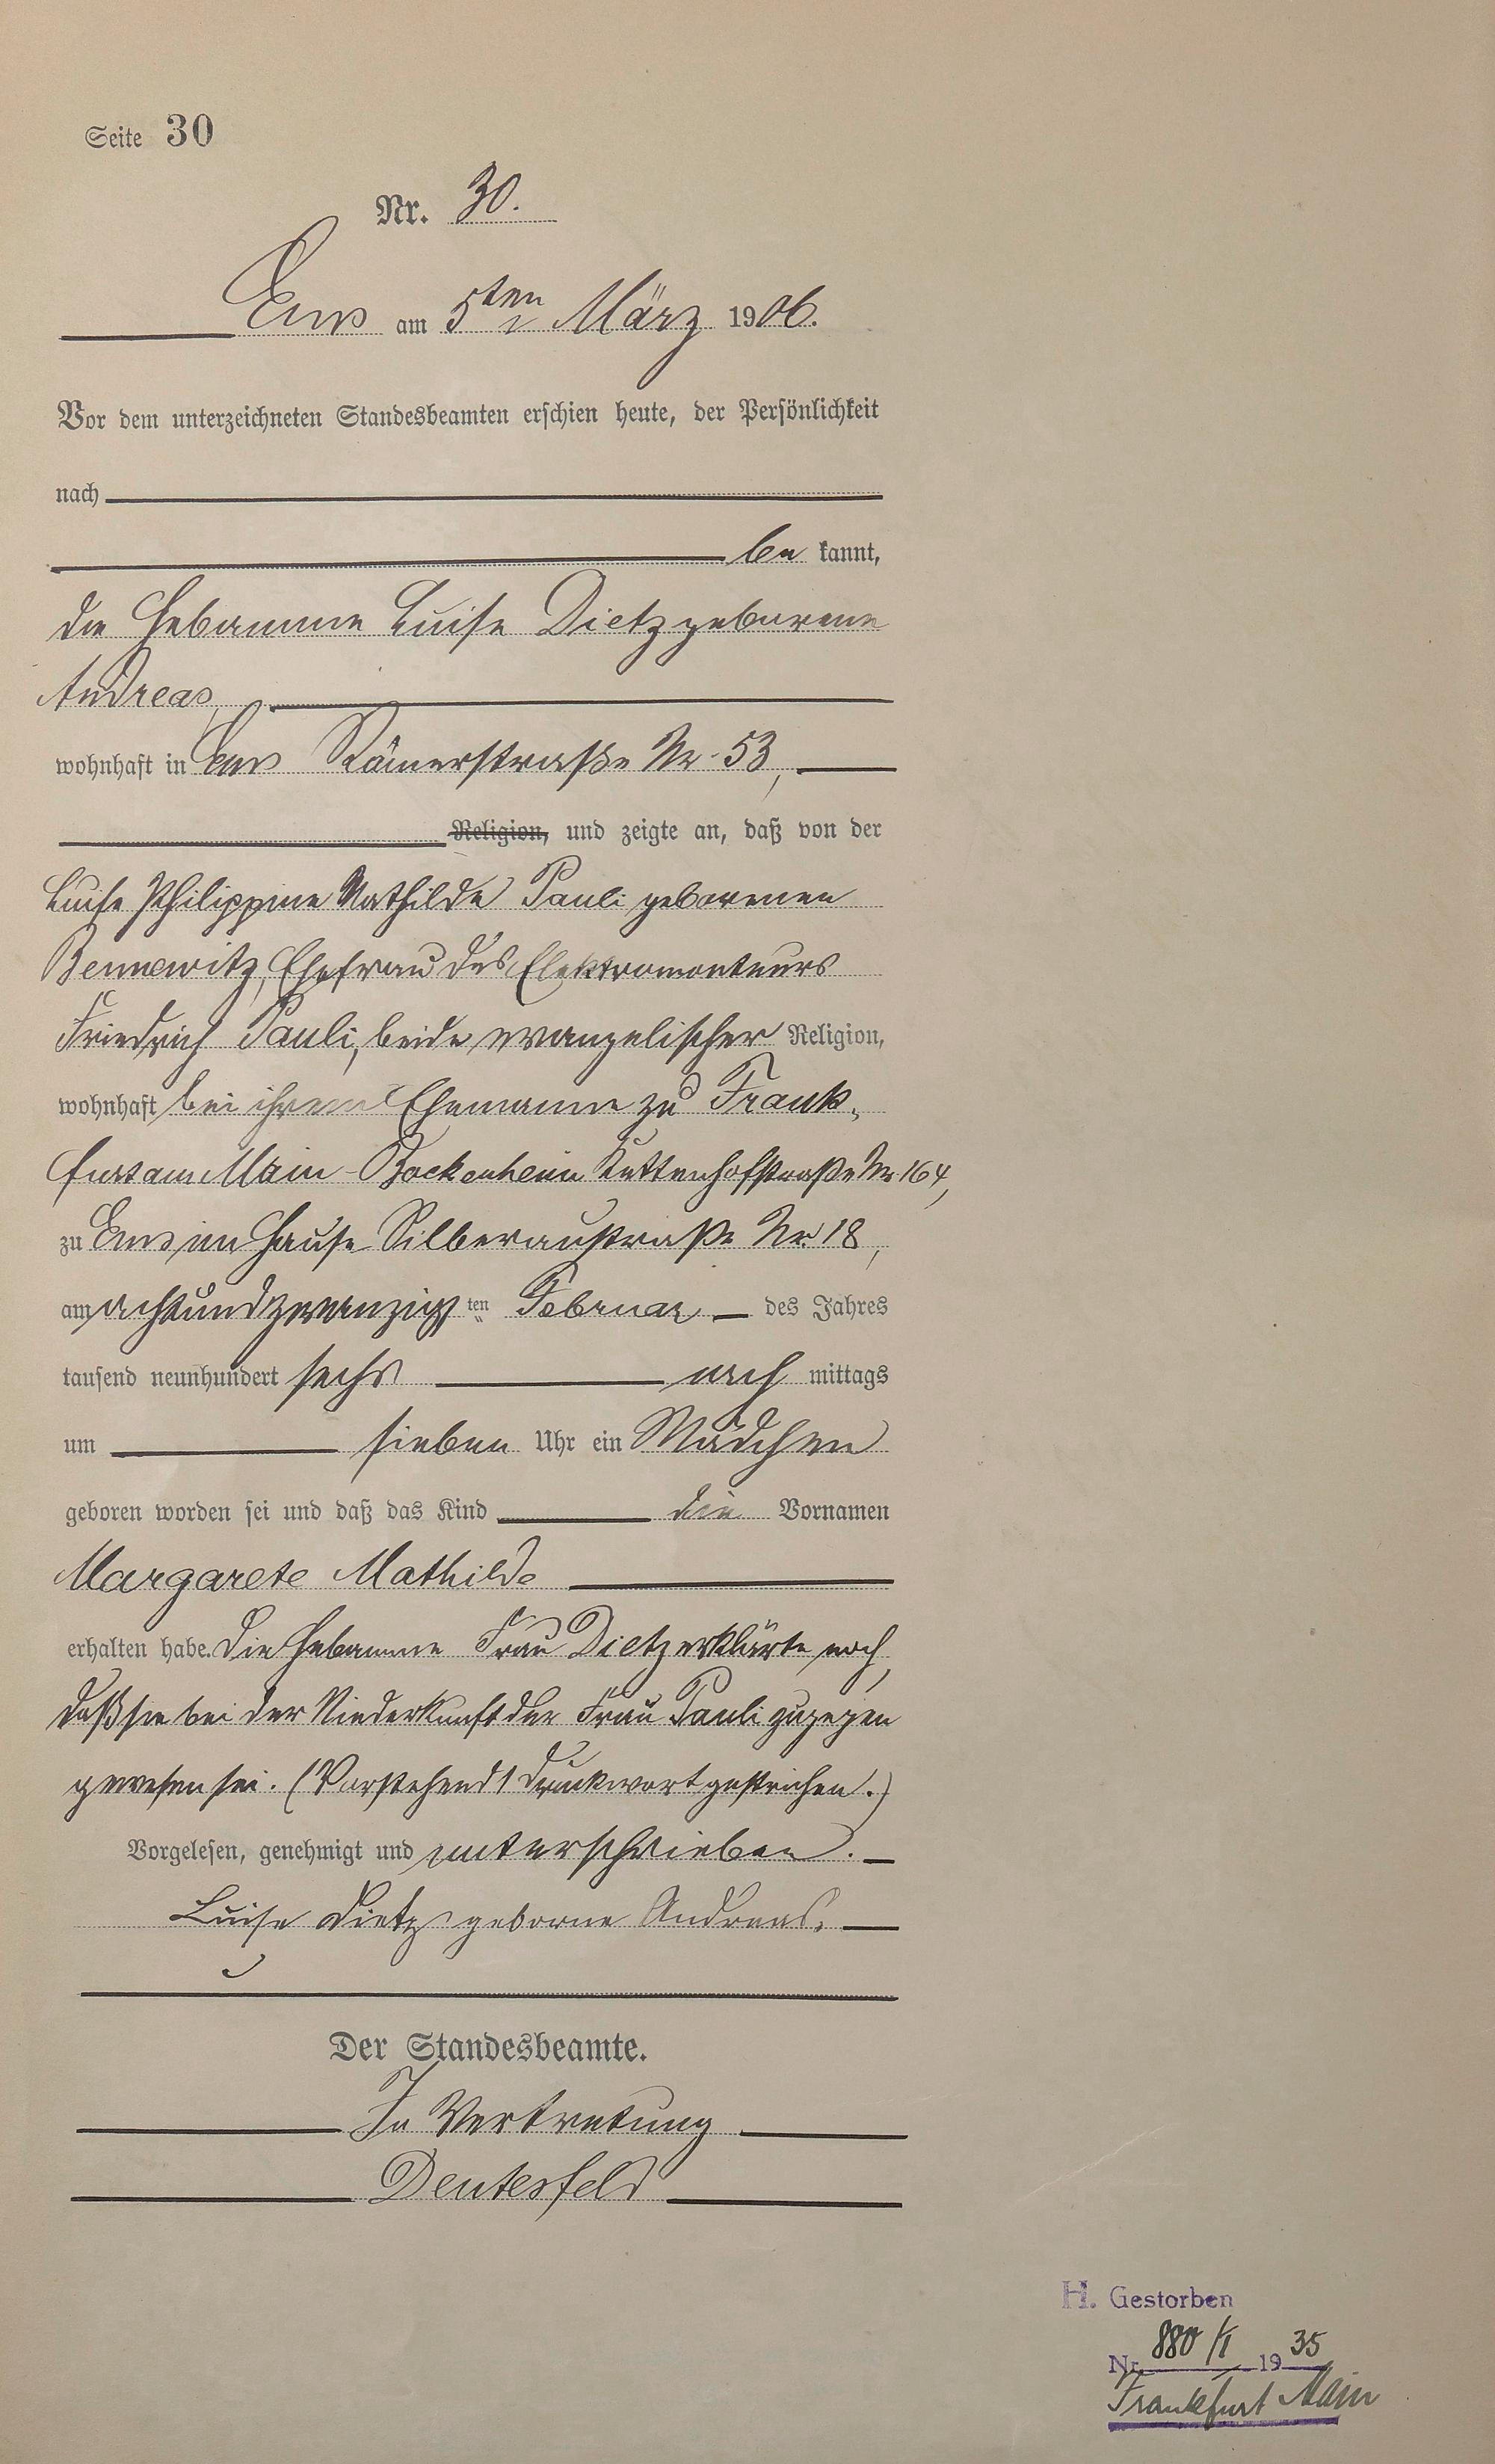 Seite 30
Nr. 30.
Ems am 5ten März 1906.
Vor dem unterzeichneten Standesbeamten erschien heute, der Persönlichkeit
nach
be kannt,
die Hebamme Luise Dietz geborene
Andreas,
wohnhaft in Ems Römerstraße Nr. 53,
Religion, und zeigte an, daß von der
Luise Philippine Mathilde Pauli geborenen
Bennewitz, Ehefrau des Elektromonteurs
Friedrich Pauli, beide evangelischer Religion,
wohnhaft bei ihrem Ehemanne zu Frank-
furt am Main-Bockenheim Kettenhofstraße Nr. 164,
zu Ems im Hause Silberaustraße Nr. 18,
am achtundzwanzigsten Februar des Jahres
tausend neunhundert sechs nach mittags
um sieben Uhr ein Mädchen
geboren worden sei und daß das Kind die Vornamen
Margarete Mathilde
erhalten habe. Die Hebamme Frau Dietz erklärte noch,
daß sie bei der Niederkunft der Frau Pauli zugegen
gewesen sei. (Vorstehend 1 Druckwort gestrichen.)
Vorgelesen, genehmigt und unterschrieben.
Luise Dietz geborne Andreas.
Der Standesbeamte.
In Vertretung
Deutesfeld
H. Gestorben
Nr. 880/I 1935
Frankfurt Main